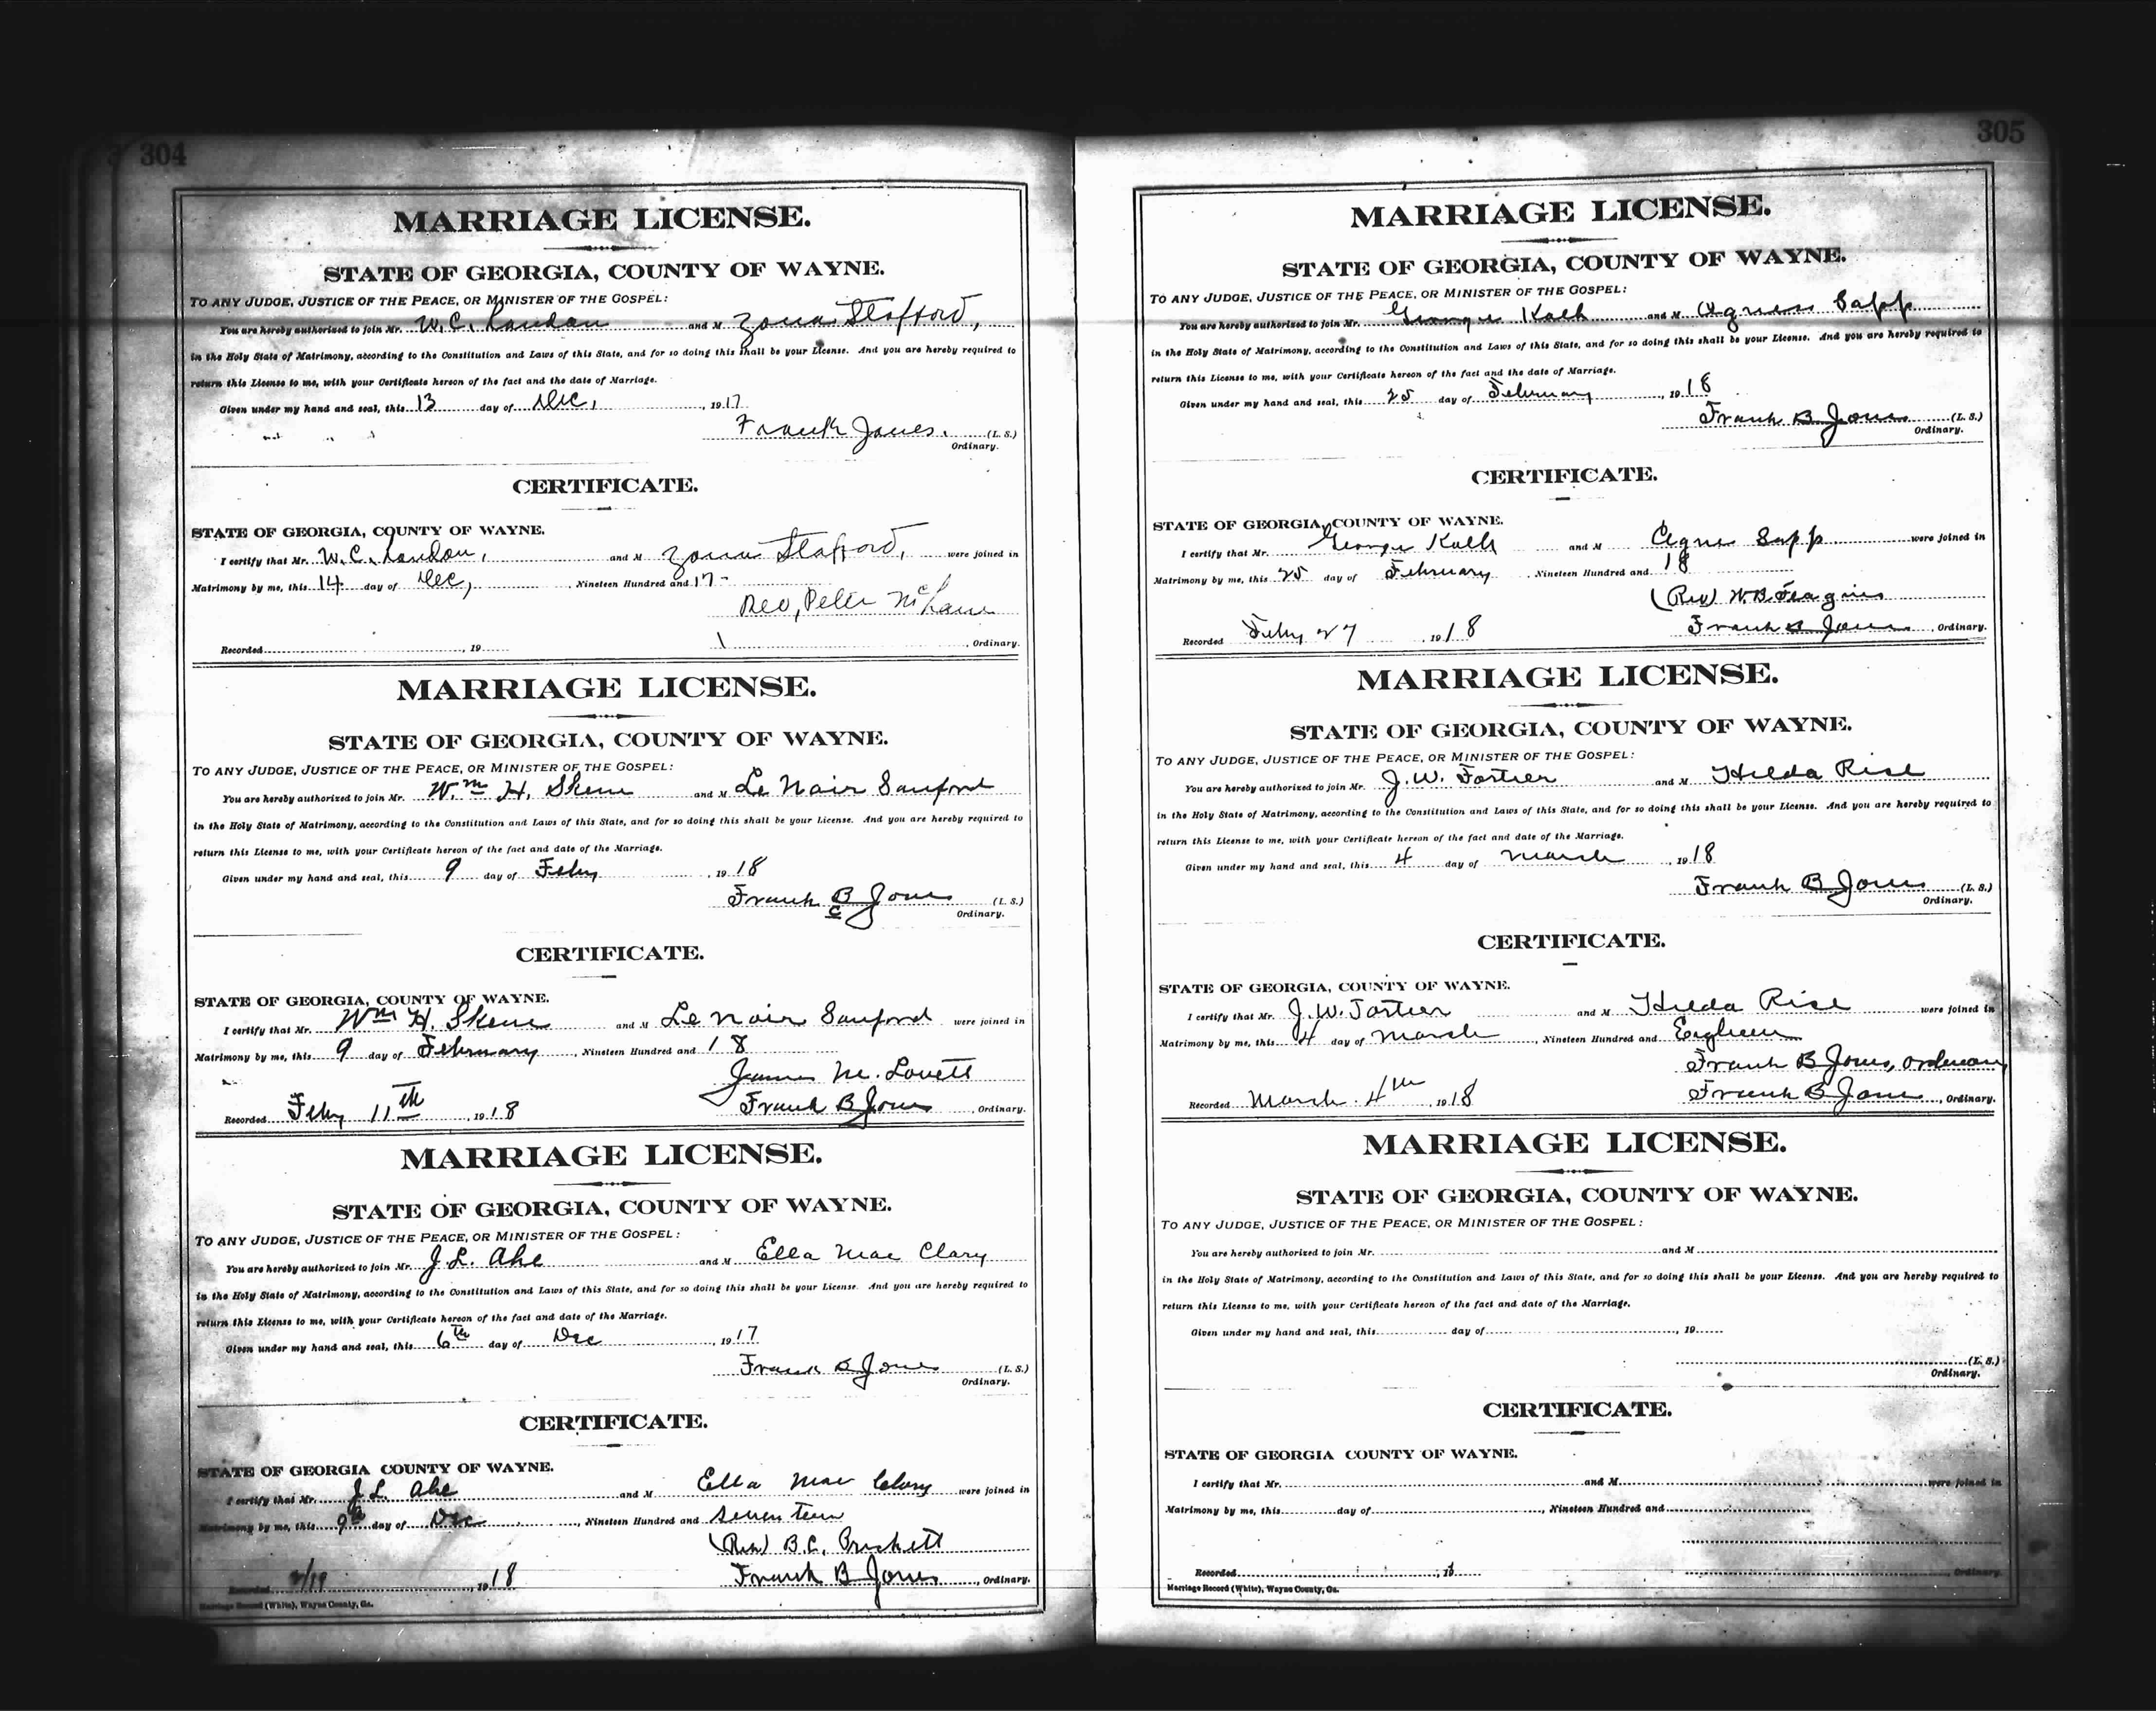 304
MARRIAGE LICENSE.
STATE OF GEORGIA, COUNTY OF WAYNE.
TO ANY JUDGE, JUSTICE OF THE PEACE, OR MINISTER OF THE GOSPEL:
You are hereby authorized to join Mr. W. C. and M Zona Stafford,
in the Holy State of Matrimony, according to the Constitution and Laws of this State, and for so doing this shall be your License. And you are hereby required to
return this License to me, with your Certificate hereon of the fact and the date of Marriage.
Given under my hand and seal, this 13 day of Dec, , 1917
Frank Jones. (L. S.)
Ordinary.
CERTIFICATE.
STATE OF GEORGIA, COUNTY OF WAYNE.
I certify that Mr. W. C. and M Zona Stafford, were joined in
Matrimony by me, this 14 day of Dec, , Nineteen Hundred and 17-
Rev, Peter
Recorded , 19 , Ordinary.
MARRIAGE LICENSE.
STATE OF GEORGIA, COUNTY OF WAYNE.
TO ANY JUDGE, JUSTICE OF THE PEACE, OR MINISTER OF THE GOSPEL:
You are hereby authorized to join Mr. Wm H. Skene and M Le Noir Sanford
in the Holy State of Matrimony, according to the Constitution and Laws of this State, and for so doing this shall be your License. And you are hereby required to
return this License to me, with your Certificate hereon of the fact and date of the Marriage.
Given under my hand and seal, this 9 day of Feby , 1918
Frank B Jones (L. S.)
C Ordinary.
CERTIFICATE.
STATE OF GEORGIA, COUNTY OF WAYNE.
I certify that Mr. Wm H. Skene and M Le Noir Sanford were joined in
Matrimony by me, this 9 day of February , Nineteen Hundred and 18
James M. Lovett
Recorded Feby 11th , 1918 Frank B Jones , Ordinary.
MARRIAGE LICENSE.
STATE OF GEORGIA, COUNTY OF WAYNE.
TO ANY JUDGE, JUSTICE OF THE PEACE, OR MINISTER OF THE GOSPEL:
You are hereby authorized to join Mr. J. L. Ahe and M Ella Mae Clary
in the Holy State of Matrimony, according to the Constitution and Laws of this State, and for so doing this shall be your License. And you are hereby required to
return this License to me, with your Certificate hereon of the fact and date of the Marriage.
Given under my hand and seal, this 6th day of Dec , 1917
Frank B Jones (L. S.)
Ordinary.
CERTIFICATE.
STATE OF GEORGIA COUNTY OF WAYNE.
I certify that Mr. J. L. Ahe and M Ella Mae Clary were joined in
Matrimony by me, this 9th day of Dec , Nineteen Hundred and Seventeen
(Rev) B. C. Prickett
Recorded 2/19 , 1918 Frank B Jones , Ordinary.
Marriage Record (White), Wayne County, Ga.
305
MARRIAGE LICENSE.
STATE OF GEORGIA, COUNTY OF WAYNE.
TO ANY JUDGE, JUSTICE OF THE PEACE, OR MINISTER OF THE GOSPEL:
You are hereby authorized to join Mr. George Kalb and M Agness Sapp
in the Holy State of Matrimony, according to the Constitution and Laws of this State, and for so doing this shall be your License. And you are hereby required to
return this License to me, with your Certificate hereon of the fact and the date of Marriage.
Given under my hand and seal, this 25 day of February , 1918
Frank B Jones (L. S.)
Ordinary.
CERTIFICATE.
STATE OF GEORGIA, COUNTY OF WAYNE.
I certify that Mr. George Kalb and M Agnes Sapp were joined in
Matrimony by me, this 25 day of February , Nineteen Hundred and 18
(Rev) W. B. Feagins
Recorded Feby 27 , 1918 Frank B Jones , Ordinary.
MARRIAGE LICENSE.
STATE OF GEORGIA, COUNTY OF WAYNE.
TO ANY JUDGE, JUSTICE OF THE PEACE, OR MINISTER OF THE GOSPEL:
You are hereby authorized to join Mr. J. W. Fortier and M Hilda Rise
in the Holy State of Matrimony, according to the Constitution and Laws of this State, and for so doing this shall be your License. And you are hereby required to
return this License to me, with your Certificate hereon of the fact and date of the Marriage.
Given under my hand and seal, this 4 day of March , 1918
Frank B Jones (L. S.)
Ordinary.
CERTIFICATE.
STATE OF GEORGIA, COUNTY OF WAYNE.
I certify that Mr. J. W. Fortier and M Hilda Rise were joined in
Matrimony by me, this 4 day of March , Nineteen Hundred and Eighteen
Frank B Jones, Ordinary
Recorded March 4th , 1918 Frank B Jones , Ordinary.
MARRIAGE LICENSE.
STATE OF GEORGIA, COUNTY OF WAYNE.
TO ANY JUDGE, JUSTICE OF THE PEACE, OR MINISTER OF THE GOSPEL:
You are hereby authorized to join Mr. and M
in the Holy State of Matrimony, according to the Constitution and Laws of this State, and for so doing this shall be your License. And you are hereby required to
return this License to me, with your Certificate hereon of the fact and date of the Marriage.
Given under my hand and seal, this day of , 19
(L. S.)
Ordinary.
CERTIFICATE.
STATE OF GEORGIA COUNTY OF WAYNE.
I certify that Mr. and M were joined in
Matrimony by me, this day of , Nineteen Hundred and
Recorded , 19 Ordinary.
Marriage Record (White), Wayne County, Ga.